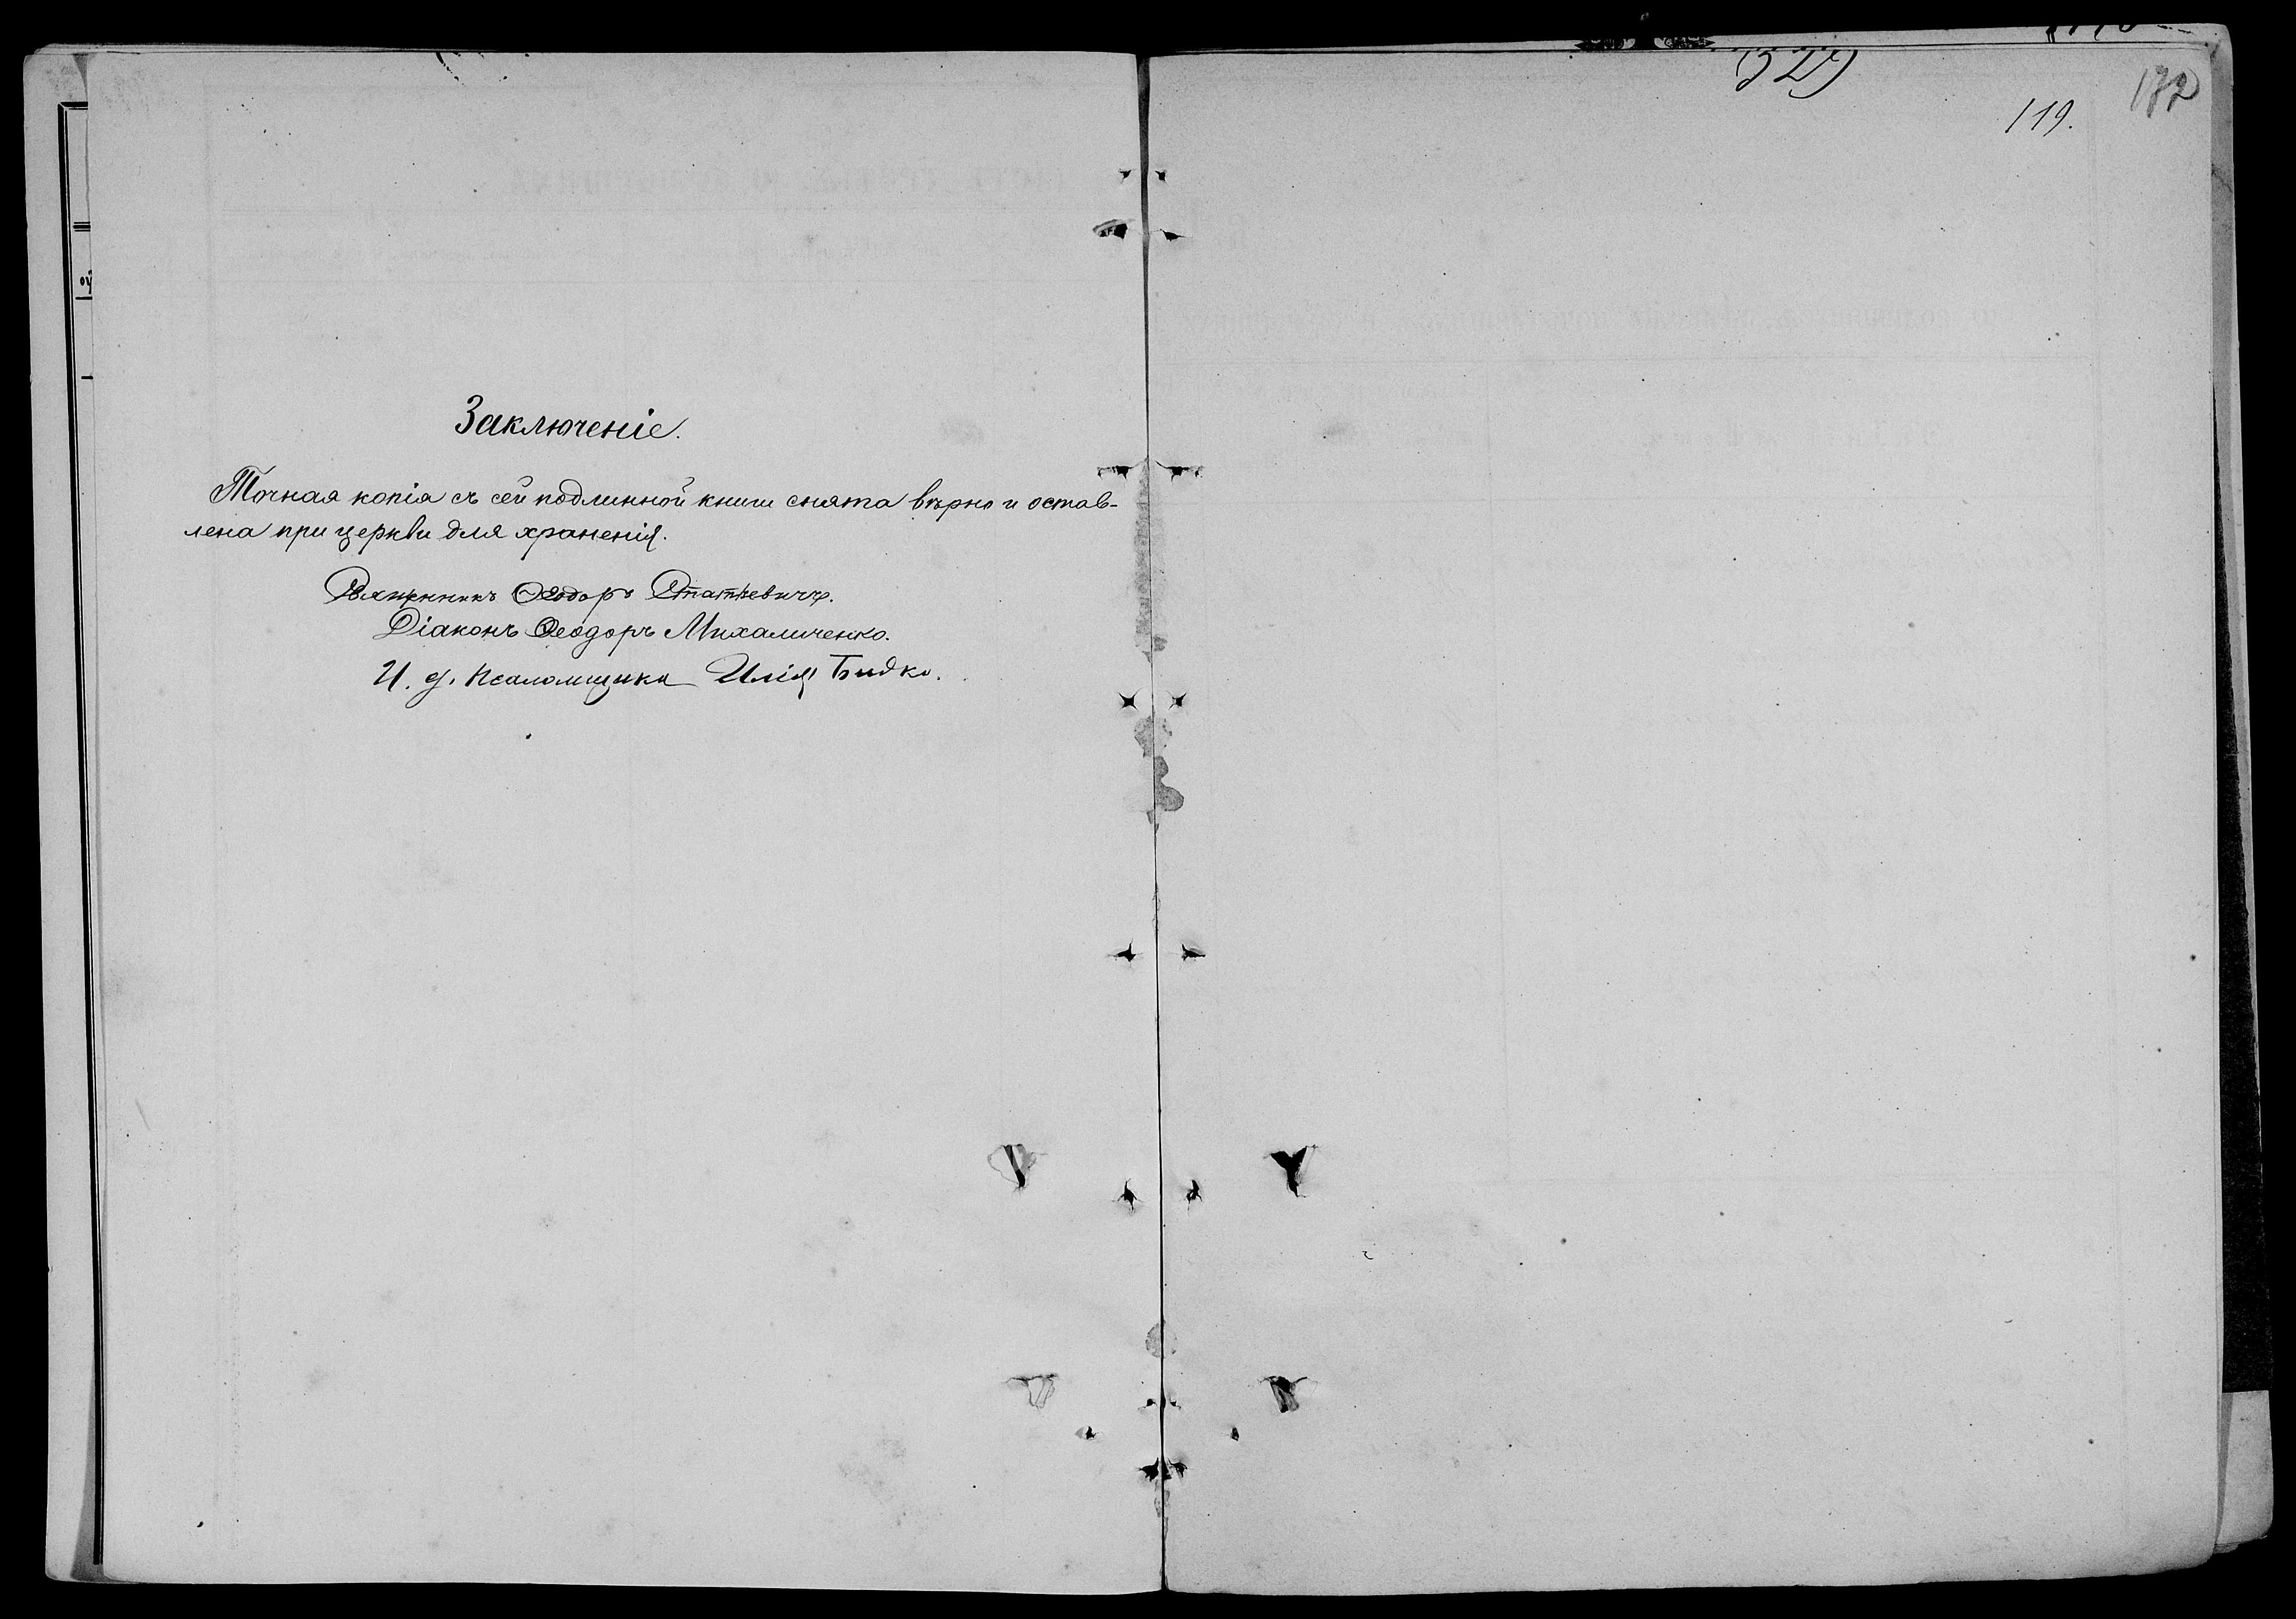 Заключеніе.
Точная копія съ сей подлинной книги снята вѣрно и остав-
лена при церкви для храненія.
Священникъ Ѳеодоръ Статкевичъ.
Діаконъ Ѳеодоръ Михаличенко.
И. д. псаломщика Илія Бидко.
119.
172